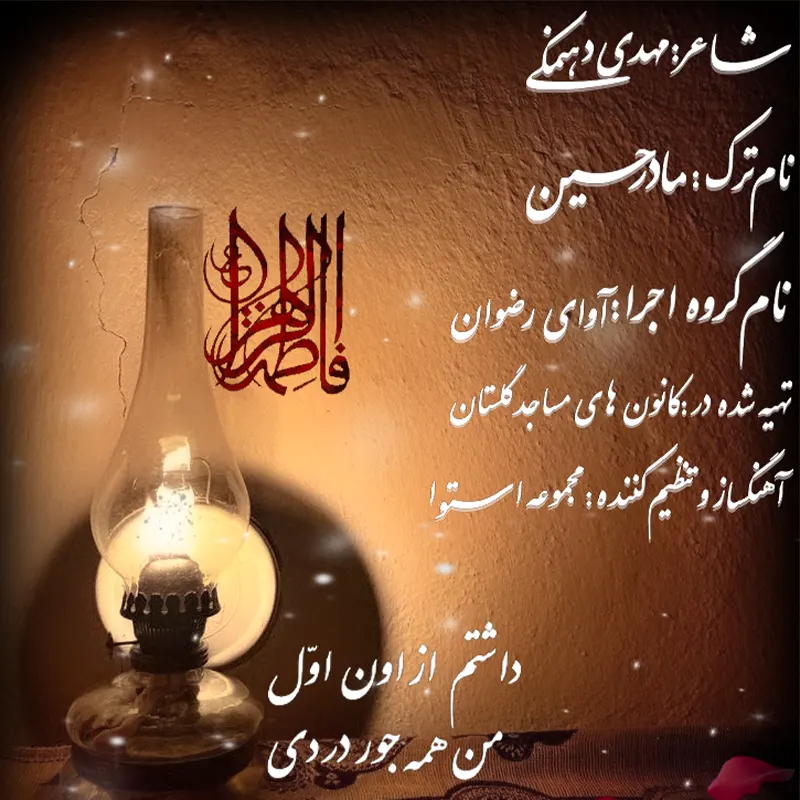 شاعر: مهدی دهمکی
نام ترک: مادر حسین
نام گروه اجرا: آوای رضوان
تهیه شده در: کانون های مساجد گلستان
آهنگساز و تنظیم کننده: مجموعه استوا
فاطمة الزهرا
داشتم از اون اوّل
من همه جور دردی